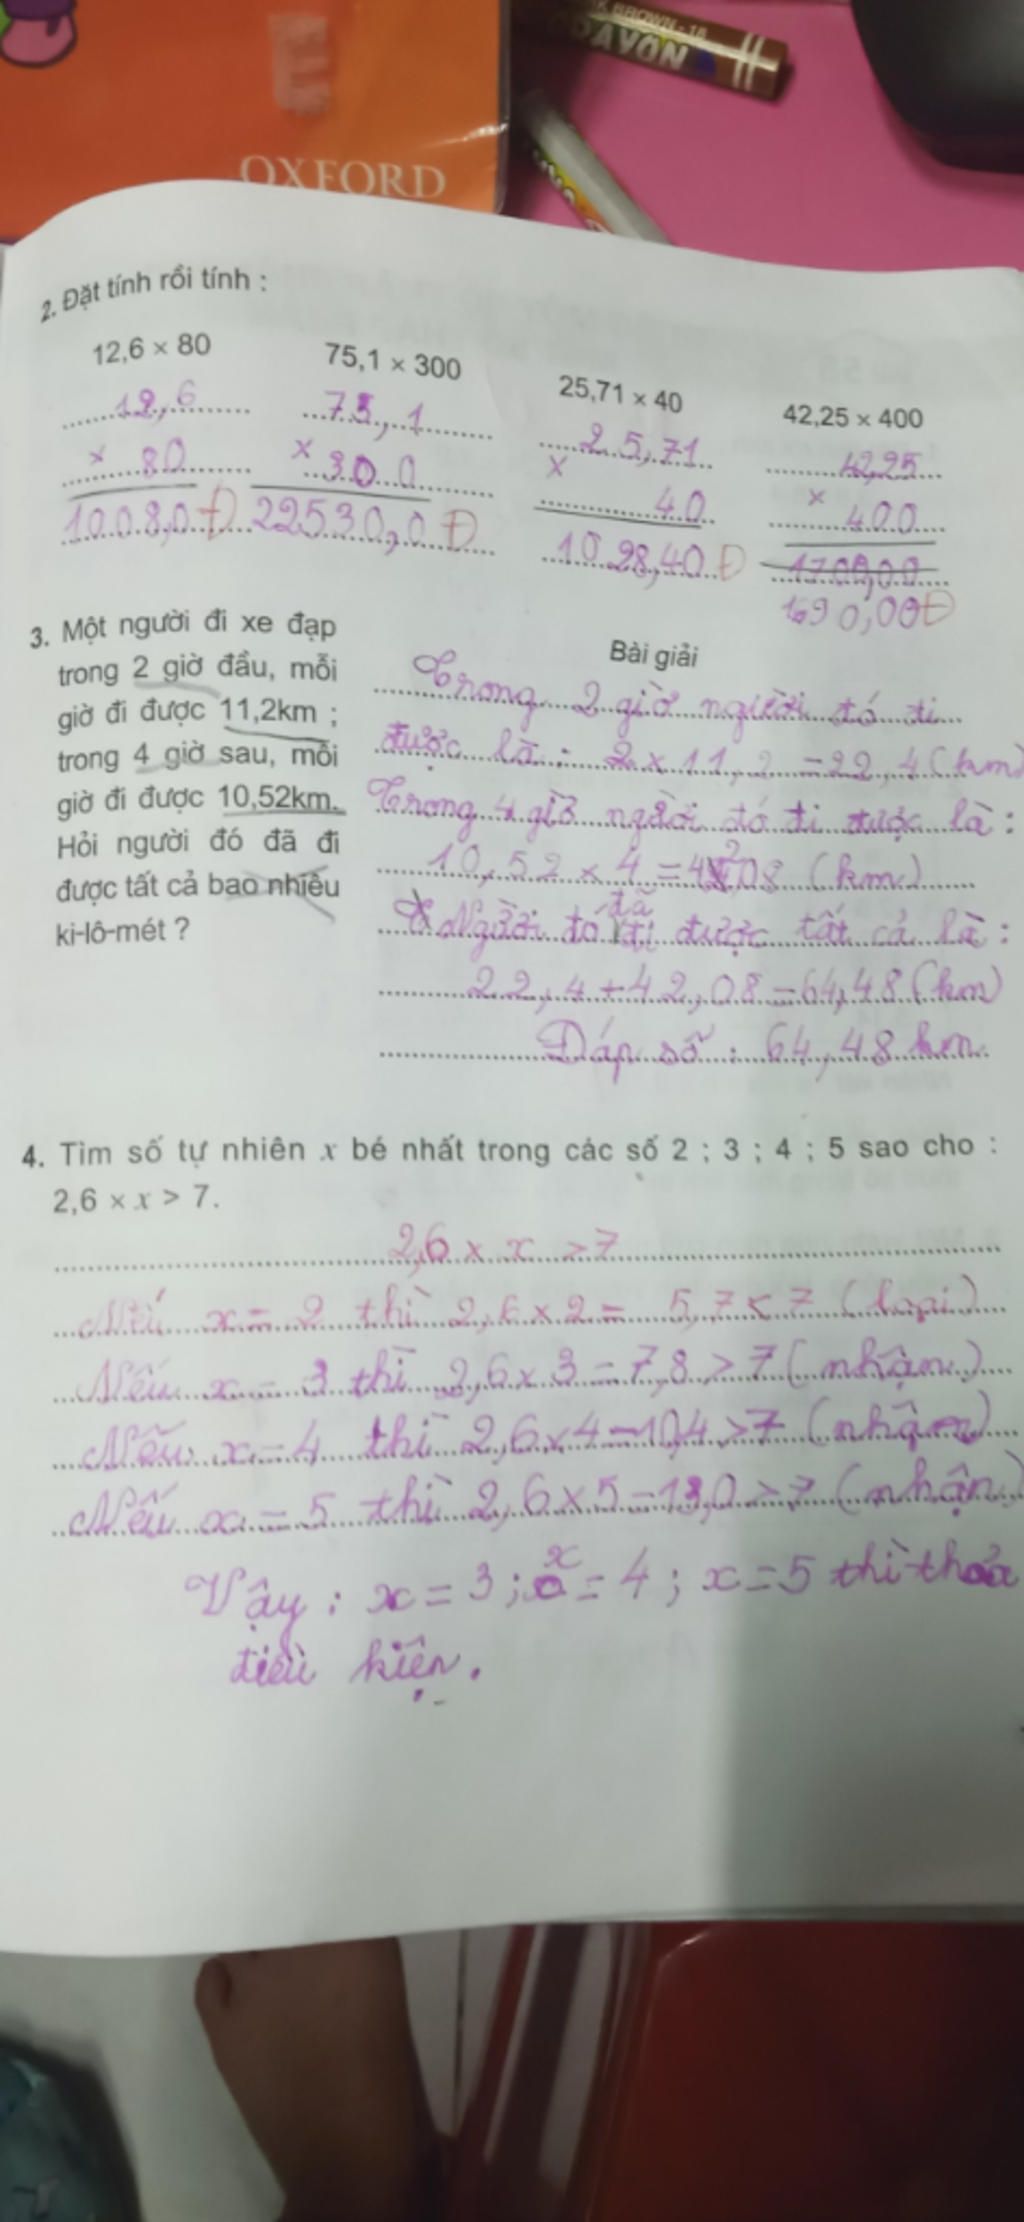 DARK BROWN - 18
CRAYON
OXFORD
2. Đặt tính rồi tính :
12,6 × 80
75,1 × 300
25,71 × 40
42,25 × 400
12,6
× 80
1008,0 Đ
75,1
× 300
22530,0 Đ
25,71
× 40
1028,40 Đ
42,25
× 400
1690,00 Đ
3. Một người đi xe đạp
trong 2 giờ đầu, mỗi
giờ đi được 11,2km ;
trong 4 giờ sau, mỗi
giờ đi được 10,52km.
Hỏi người đó đã đi
được tất cả bao nhiêu
ki-lô-mét ?
Bài giải
Trong 2 giờ người đó đi
được là : 2 × 11,2 = 22,4 (km)
Trong 4 giờ người đó đi được là :
10,52 × 4 = 42,08 (km)
Người đó đã đi được tất cả là :
22,4 + 42,08 = 64,48 (km)
Đáp số : 64,48 km
4. Tìm số tự nhiên x bé nhất trong các số 2 ; 3 ; 4 ; 5 sao cho :
2,6 × x > 7.
2,6 × x > 7
Nếu x = 2 thì 2,6 × 2 = 5,7 < 7 (loại)
Nếu x = 3 thì 2,6 × 3 = 7,8 > 7 (nhận)
Nếu x = 4 thì 2,6 × 4 = 10,4 > 7 (nhận)
Nếu x = 5 thì 2,6 × 5 = 13,0 > 7 (nhận)
Vậy : x = 3 ; x = 4 ; x = 5 thì thoả
điều kiện.